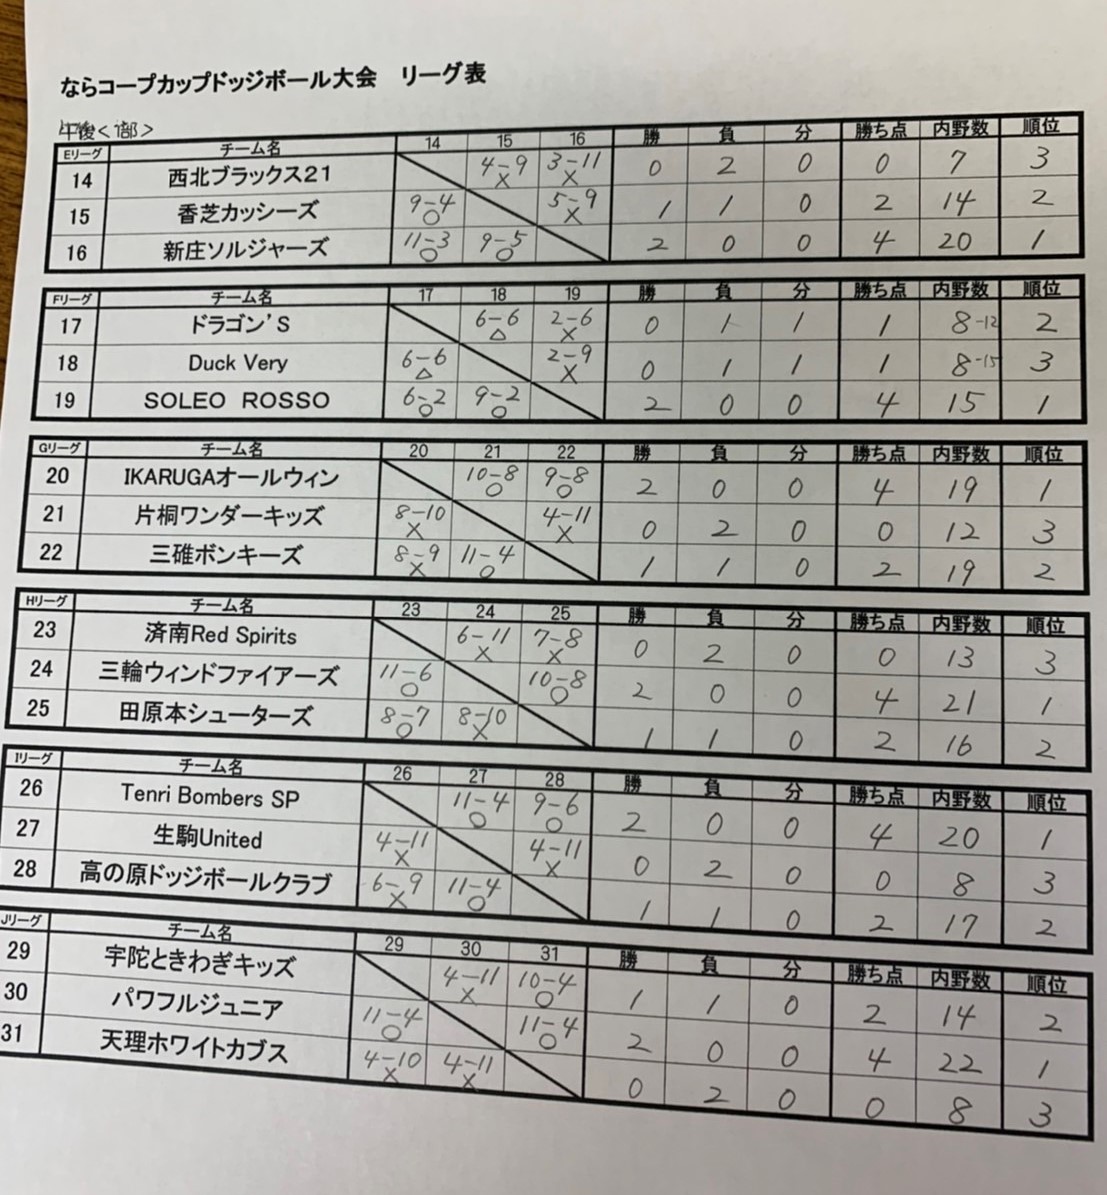 ならコープカップドッジボール大会 リーグ表
午後<1部>
Eリーグ チーム名 14 15 16 勝 負 分 勝ち点 内野数 順位
14 西北ブラックス21 4-9 × 3-11 × 0 2 0 0 7 3
15 香芝カッシーズ 9-4 ○ 5-9 × 1 1 0 2 14 2
16 新庄ソルジャーズ 11-3 ○ 9-5 ○ 2 0 0 4 20 1
Fリーグ チーム名 17 18 19 勝 負 分 勝ち点 内野数 順位
17 ドラゴン'S 6-6 △ 2-6 × 0 1 1 1 8-12 2
18 Duck Very 6-6 △ 2-9 × 0 1 1 1 8-15 3
19 SOLEO ROSSO 6-2 ○ 9-2 ○ 2 0 0 4 15 1
Gリーグ チーム名 20 21 22 勝 負 分 勝ち点 内野数 順位
20 IKARUGAオールウィン 10-8 ○ 9-8 ○ 2 0 0 4 19 1
21 片桐ワンダーキッズ 8-10 × 4-11 × 0 2 0 0 12 3
22 三碓ボンキーズ 8-9 × 11-4 ○ 1 1 0 2 19 2
Hリーグ チーム名 23 24 25 勝 負 分 勝ち点 内野数 順位
23 済南Red Spirits 6-11 × 7-8 × 0 2 0 0 13 3
24 三輪ウィンドファイアーズ 11-6 ○ 10-8 ○ 2 0 0 4 21 1
25 田原本シューターズ 8-7 ○ 8-10 × 1 1 0 2 16 2
Iリーグ チーム名 26 27 28 勝 負 分 勝ち点 内野数 順位
26 Tenri Bombers SP 11-4 ○ 9-6 ○ 2 0 0 4 20 1
27 生駒United 4-11 × 4-11 × 0 2 0 0 8 3
28 高の原ドッジボールクラブ 6-9 × 11-4 ○ 1 1 0 2 17 2
Jリーグ チーム名 29 30 31 勝 負 分 勝ち点 内野数 順位
29 宇陀ときわぎキッズ 4-11 × 10-4 ○ 1 1 0 2 14 2
30 パワフルジュニア 11-4 ○ 11-4 ○ 2 0 0 4 22 1
31 天理ホワイトカブス 4-10 × 4-11 × 0 2 0 0 8 3